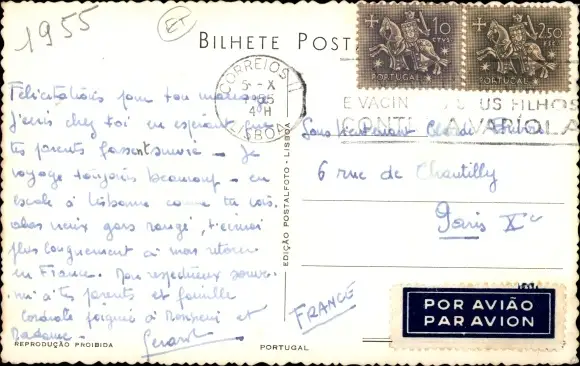 1955
ET
BILHETE POSTA
10
CTVS
PORTUGAL
2$50
PORTUGAL
CORREIOS
5 - X
55
4 H
LISBOA
E VACIN US FILHOS
CONT A VARÍOLA
Félicitations pour ton mariage
J'écris chez toi en espérant que
tes parents fassent suivre - Je
voyage toujours beaucoup - en
escale à Lisbonne comme tu vois
vieux gars rangé, t'écrirai
plus longuement à mon retour
en France. Mon respectueux souve-
nir à tes parents et famille
Cordiale poignée à Monsieur et
Madame - Gerard
Sous Lieutenant Claude
6 rue de Chantilly
Paris Xe
FRANCE
EDIÇÃO POSTALFOTO - LISBOA
POR AVIÃO
PAR AVION
REPRODUÇÃO PROIBIDA
PORTUGAL